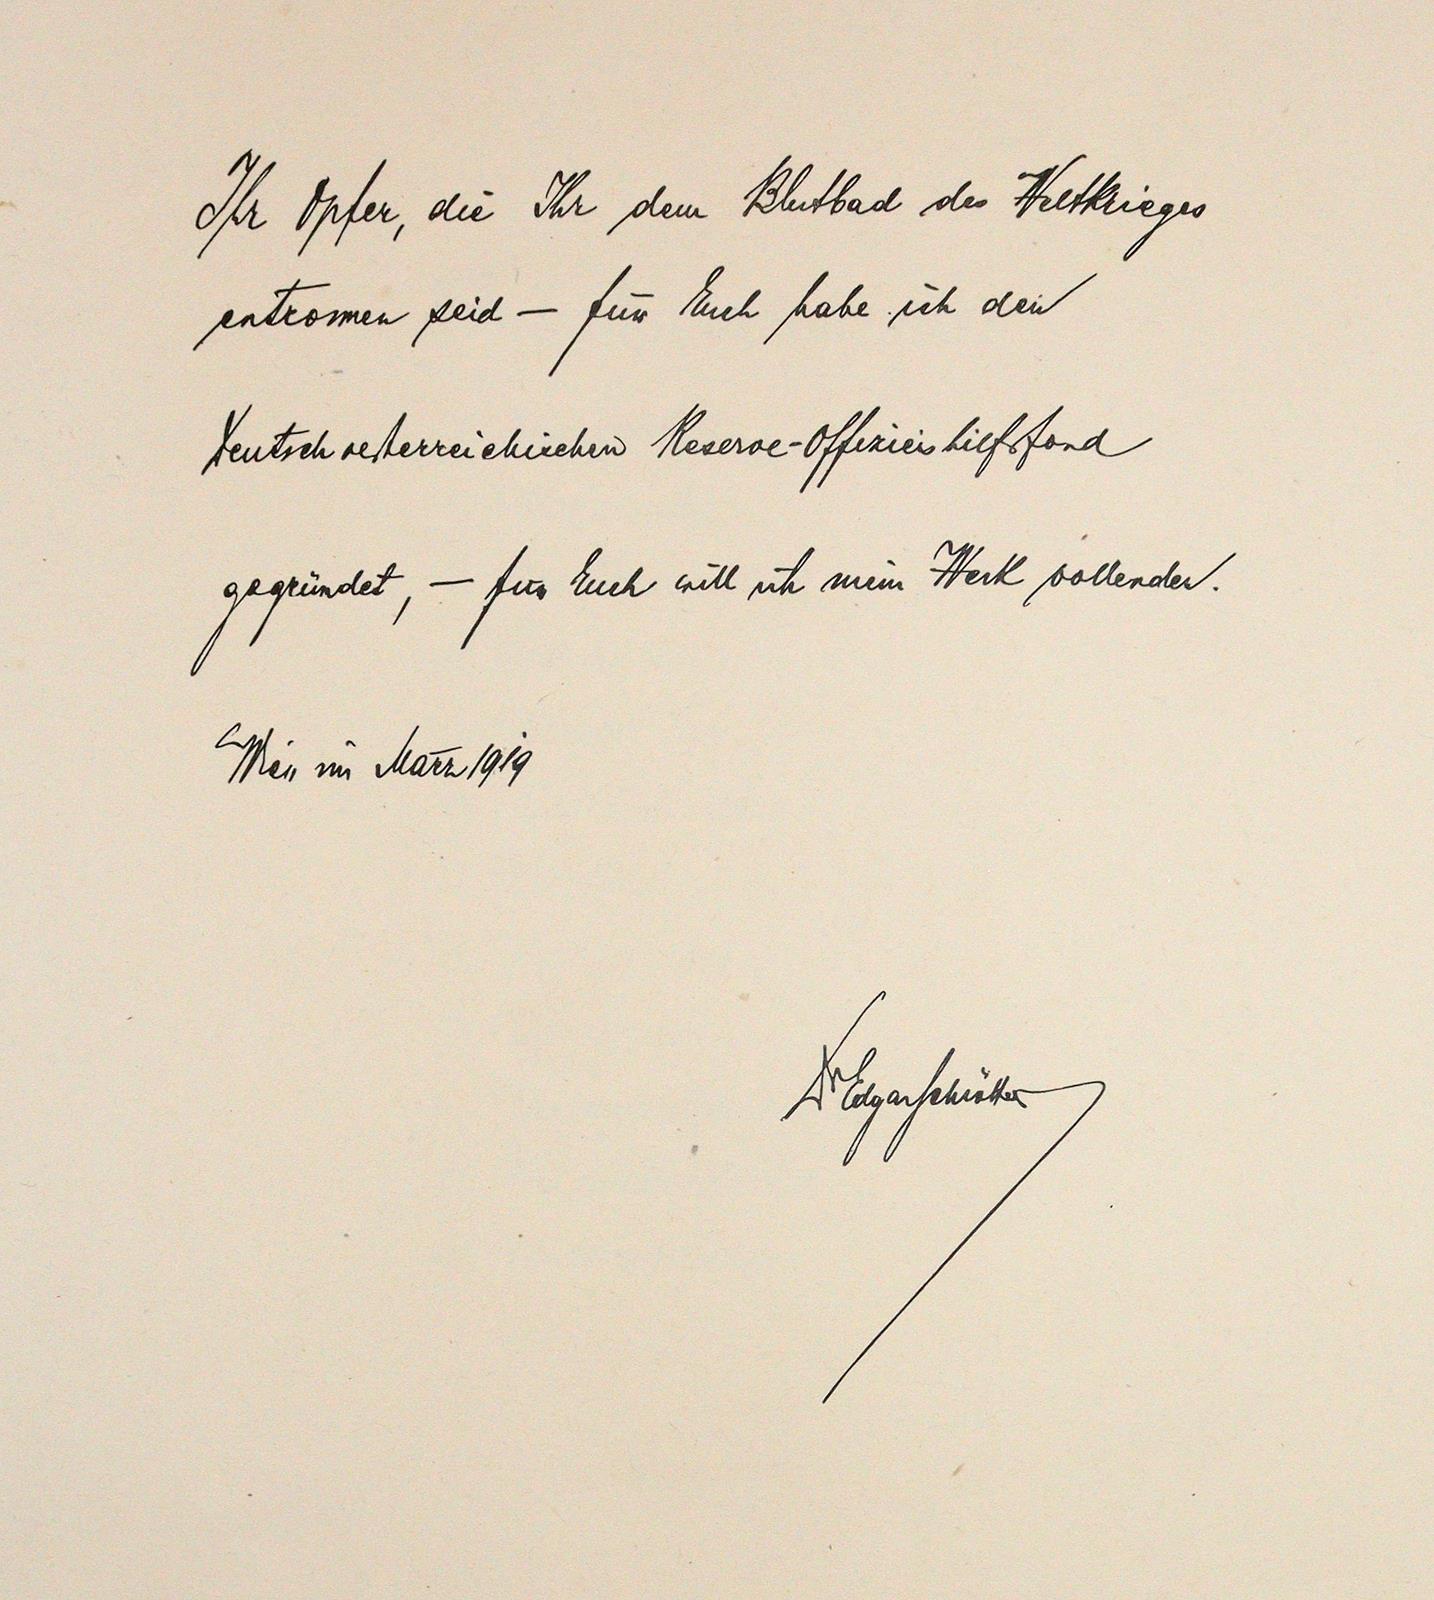 Ihr Opfer, die Ihr dem Blutbad des Weltkrieges
entronnen seid — für Euch habe ich den
Deutschoesterreichischen Reserve-Offiziershilfsfond
gegründet, — für Euch will ich mein Werk vollenden.
Wien im März 1919
Dr Edgar Schrötter